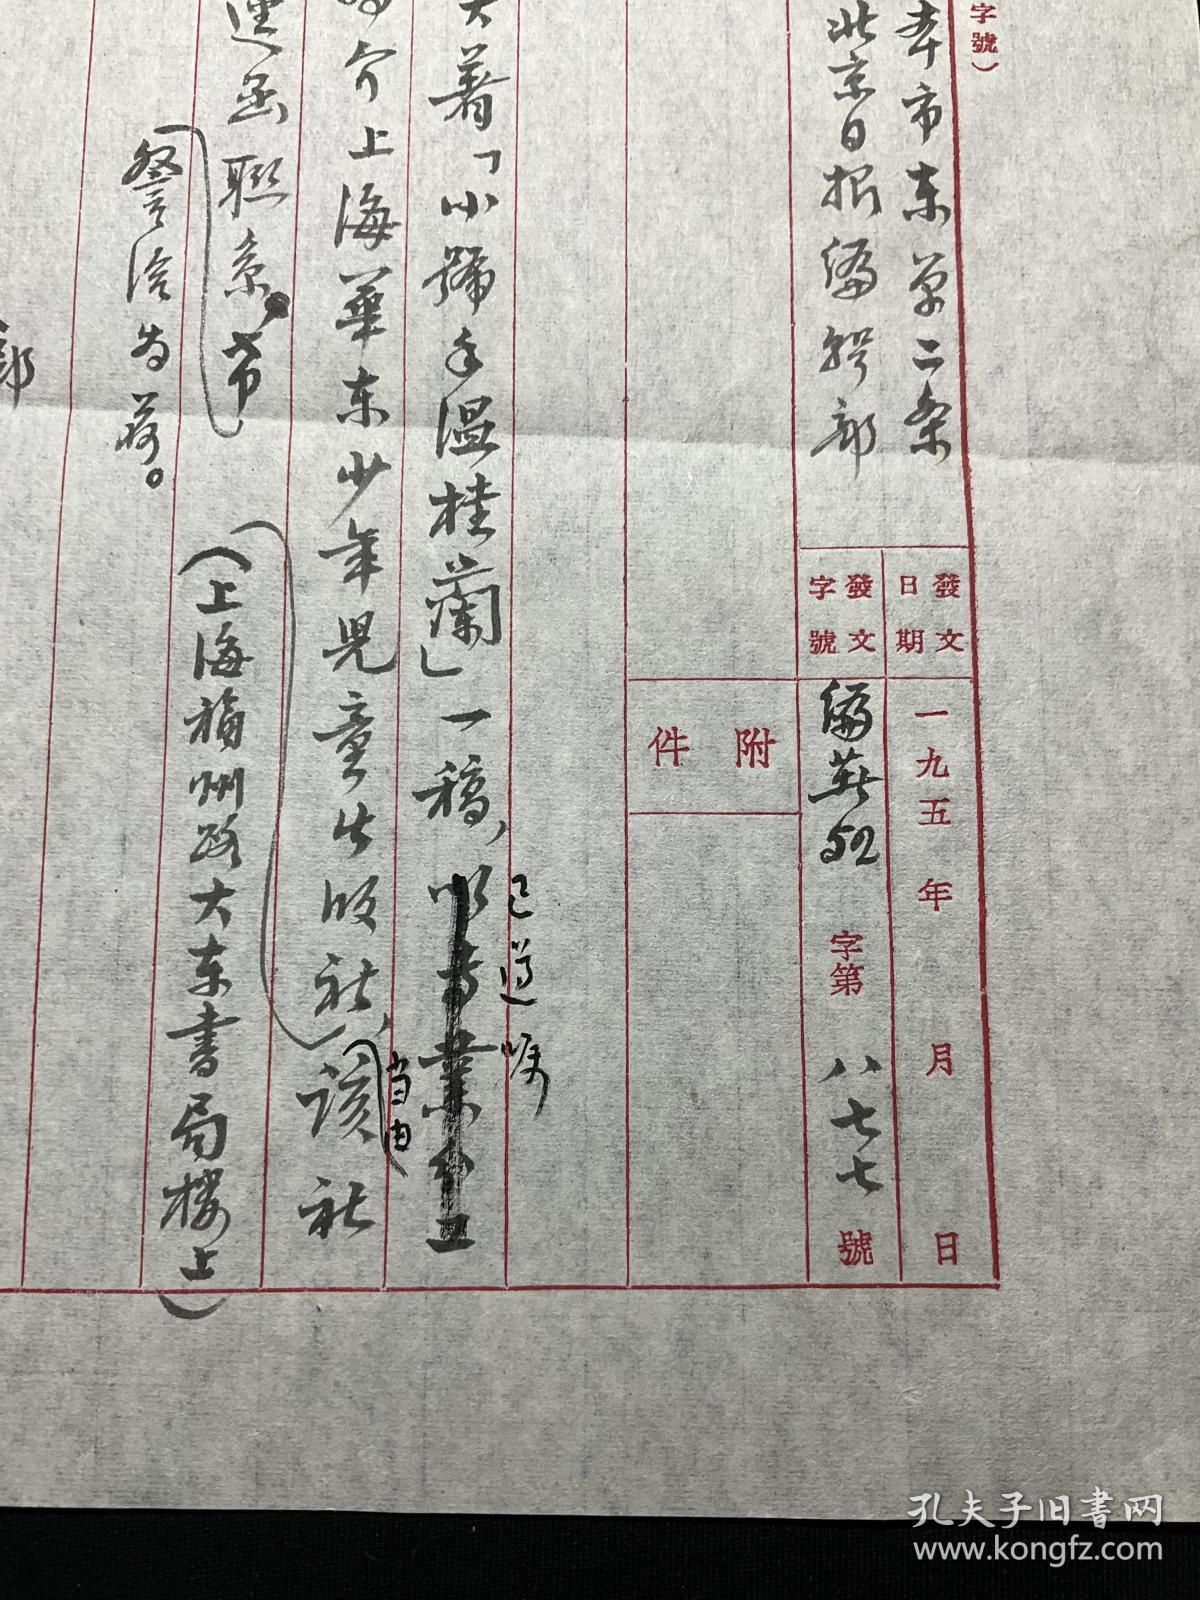 字號）
本市东单二条
北京日报編輯部
發文日期
一九五 年 月 日
發文字號
編 字第 八七七 號
附件
大著「小號手溫桂蘭」一稿，
已遵嘱
介上海華东少年兒童出版社，该社
当由
逕函联系。希
（上海福州路大东書局楼上）
詧洽为荷。
部
孔夫子旧书网
www.kongfz.com